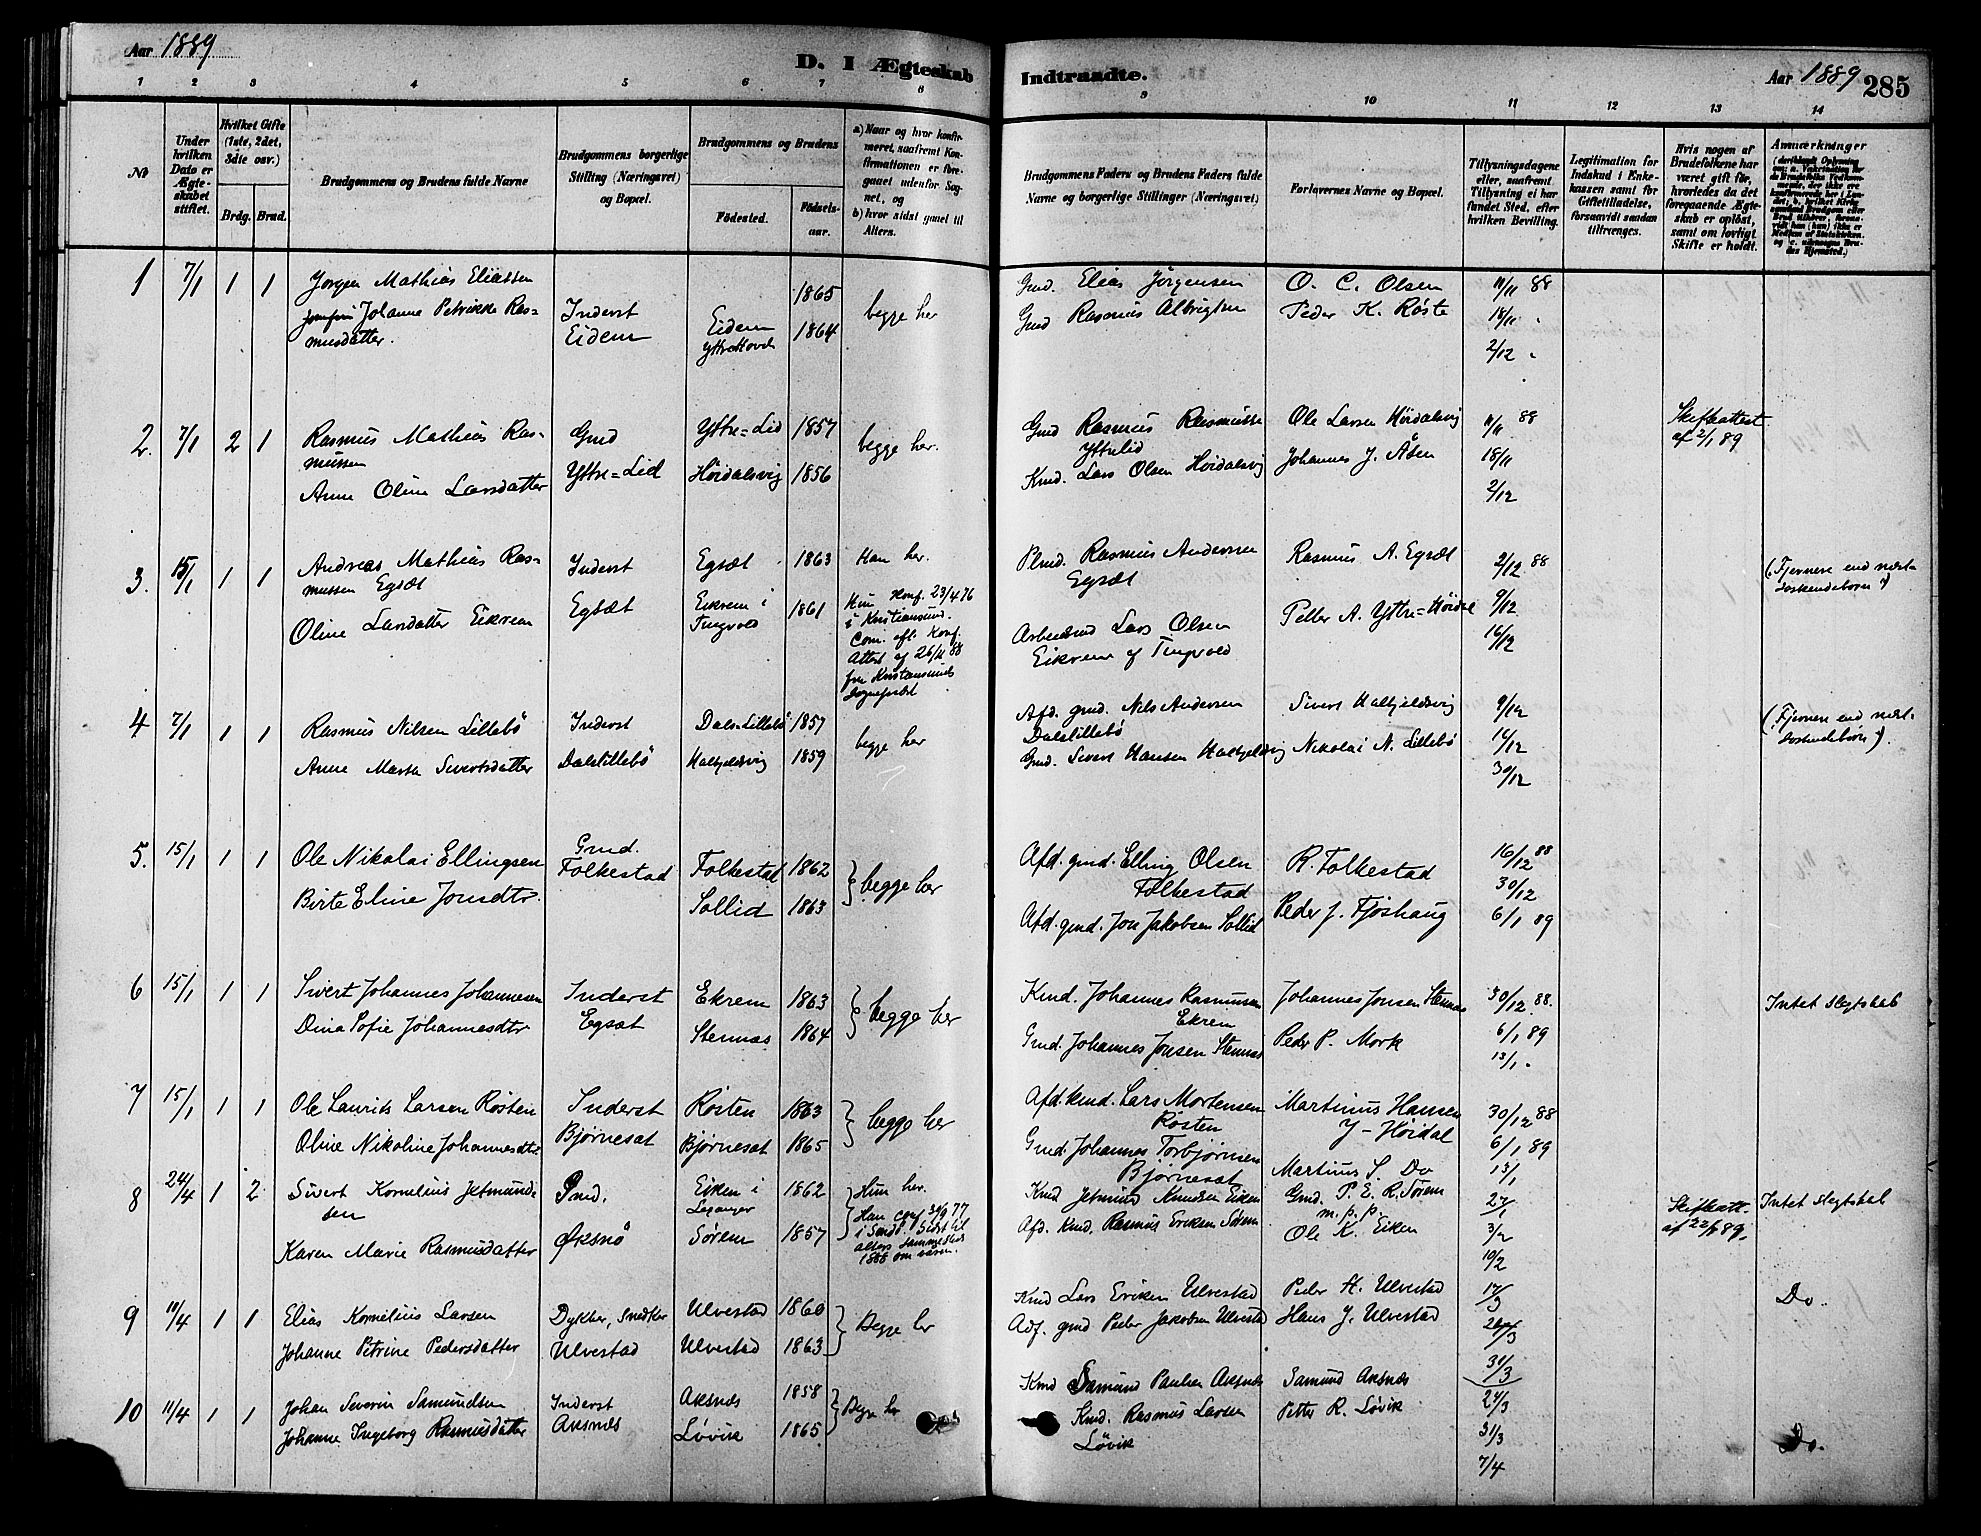 Aar 1889
D. I Ægteskab
Indtraadte.
Aar 1889
285
1 2 3 4 5 6 7 8
9 10 11 12 13 14
No
Under hvilken Dato er Ægteskabet stiftet.
Hvilket Gifte (1ste, 2det, 3die osv.)
Brdg. Brud.
Brudgommens og Brudens fulde Navne
Brudgommens borgerlige Stilling (Næringsvei) og Bopæl.
Brudgommens og Brudens
Fødested.
Fødselsaar.
a) Naar og hvor konfirmeret, saafremt Konfirmationen er foregaaet udenfor Sognet, og
b) hvor sidst gaaet til Alters.
Brudgommens Faders og Brudens Faders fulde Navne og borgerlige Stillinger (Næringsvei)
Forlovernes Navne og Bopæl.
Tillysningsdagene eller, saafremt Tillysning ei har fundet Sted, efter hvilken Bevilling.
Legitimation for Indskud i Enkekassen samt for Giftetilladelse, forsaavidt saadan tiltrænges.
Hvis nogen af Brudefolkene har været gift før, hvorledes da det foregaaende Ægteskab er opløst, samt om lovligt Skifte er holdt.
Anmærkninger
1 7/1 1 1
Jørgen Mathias Eliassen
Johanne Petrikke Rasmusdatter.
Inderst
Eidem
Eidem 1865
Ytre Hovd 1864
begge her
Gmd. Elias Jørgensen
Gmd Rasmus Albrigtsen
O. C. Olsen
Peder K. Røste
11/11 88
18/11 "
2/12 "
2. 7/1 2 1
Rasmus Mathias Rasmussen
Anne Oline Larsdatter
Gmd
Yttre=Lid
Yttre=Lid 1857
Høidalsvig 1856
begge her.
Gmd Rasmus Rasmussen
Yttrelid
Kmd. Lars Olsen Høidalsvig
Ole Larsen Høidalsvig
Johannes J. Åsen
11/11 88
18/11
2/12
Skifteattest
af 2/1 89
3. 15/1 1 1
Andreas Mathias Rasmussen Egsæt
Oline Larsdatter Eikrem
Inderst
Egsæt
Egsæt 1863
Eikrem i Tingvold 1861
Han her.
Hun Konf. 23/4 76
i Kristiansund.
Com. efl. Konf.
Attest af 26/11 88
fra Kristiansunds
Sognepræst
Plmd. Rasmus Andersen
Egsæt
Arbeidsmd Lars Olsen
Eikrem af Tingvold
Rasmus A. Egsæt
Petter A. Yttre=Høidal
2/12 88
9/12
16/12
(Fjernere end næst-
søskendebørn)
4 7/1 1 1
Rasmus Nilsen Lillebø
Anne Marta Sivertsdatter
Inderst
Dalslillebø
Dals-Lillebø 1857
Halkjelsvig 1859
begge her
Afd. gmd. Nils Andersen
Dalslillebø
Gmd. Sivert Hansen Halkjelsvig
Sivert Halkjelsvig
Nikolai N. Lillebø
9/12
16/12
30/12
(Fjernere end næst-
søskendebørn).
5. 15/1 1 1
Ole Nikolai Ellingsen
Birte Eline Jonsdtr.
Gmd.
Folkestad
Folkestad 1862
Sollid 1863
begge her
Afd. gmd. Elling Olsen
Folkestad
Afd. gmd. Jon Jakobsen Sollid
R. Folkestad
Peder J. Fjøshaug
16/12 88
30/12
6/1 89
6 15/1 1 1
Sivert Johannes Johannesen
Dina Sofie Johannesdtr
Inderst
Egsæt
Ekrem 1863
Stennæs 1864
begge her
Kmd. Johannes Rasmussen
Ekrem
Gmd. Johannes Jonsen Stennæs
Johannes Jonsen Stennæs
Peder P. Mork
30/12 88.
6/1 89
13/1 "
Intet slegtskab
7 15/1 1 1
Ole Laurits Larsen Røsten
Oline Nikoline Johannesdtr
Inderst
Bjørnesæt
Røsten 1863
Bjørnesæt 1865
begge her
Afd. kmd. Lars Mortensen
Røsten
Gmd. Johannes Torbjørnsen
Bjørnesæt
Martinus Hansen
Y-Høidal
Martinus S. Do
30/12 88
6/1 89
13/1
8 24/4 1 2
Sivert Kornelius Jetmundsen
Karen Marie Rasmusdatter
Gmd.
Øksnø
Eiken i 1862
Sørem 1857
Hun her.
Han conf 3/9 77
Kmd Jetmund Knudsen Eiken
Afd. Kmd. Rasmus Eriksen Sørem
Gmd. P. E. R. Sørem
m. p. p.
Ole K. Eiken
27/1
3/2
10/2
Skifteatt.
af 22/1 89.
Intet slegtskab
9 11/4 1 1
Elias Kornelius Larsen
Johanne Petrine Pedersdatter
Dykker, Snedker
Ulvestad
Ulvestad 1860
Ulvestad 1863
Begge her
Kmd Lars Eriksen Ulvestad
Adf. gmd Peder Jakobsen Ulvestad
Peder H. Ulvestad
Hans J. Ulvestad
17/3
24/3
31/3
Do.
10 11/4 1 1
Johan Severin Samundsen
Johanne Ingeborg Rasmusdatter
Inderst
Aksnæs
Aksnæs 1858
Løvik 1865
Begge her
Kmd Samund Paulsen Aksnæs
Kmd. Rasmus Larsen
Løvik
Samund Aksnæs
Petter R. Løvik
24/3
31/3
7/4
Do.